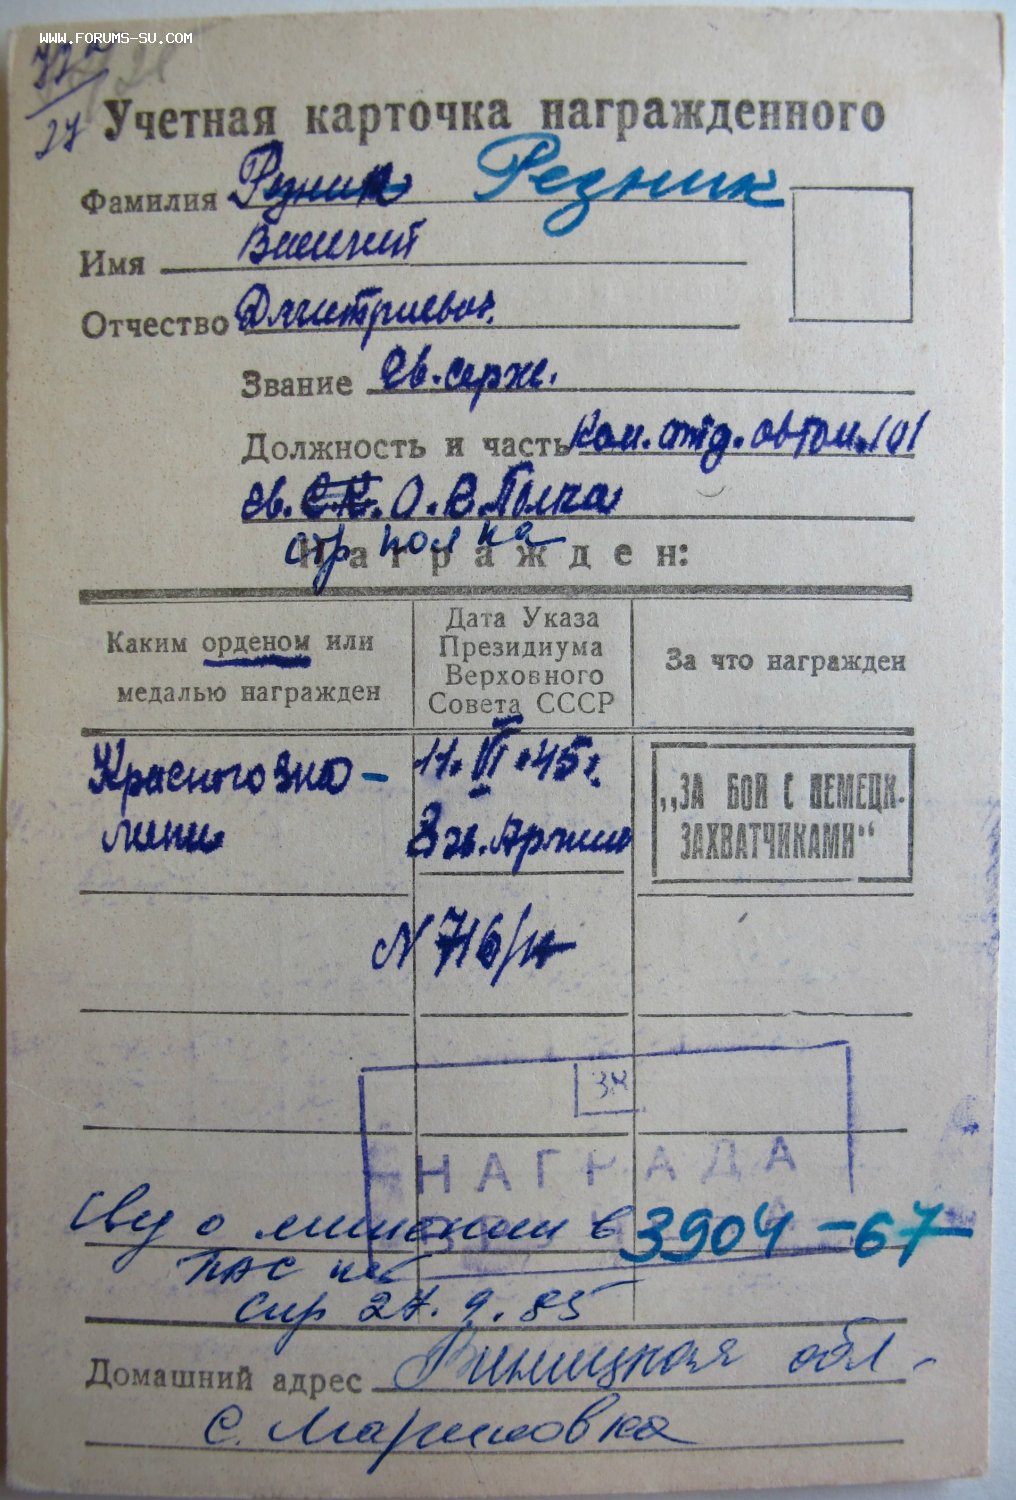 WWW.FORUMS-SU.COM
27
Учетная карточка награжденного
Фамилия Резник Резник
Имя Василий
Отчество Дмитриевич
Звание гв. серж.
Должность и часть Ком. отд. автом. 101
гв. С.К. О. С. Полка
стр полка
Награжден:
Каким орденом или медалью награжден
Дата Указа Президиума Верховного Совета СССР
За что награжден
Красного Зна-
мени
11.VI.45г.
8 гв. Армии
„ЗА БОИ С НЕМЕЦК.
ЗАХВАТЧИКАМИ“
N 716/н
НАГРАДА
ВРУЧЕНА
о лишении в 3904-67
ПАС нет
спр 27.9.85
Домашний адрес Виницкая обл-
с. Мариновка